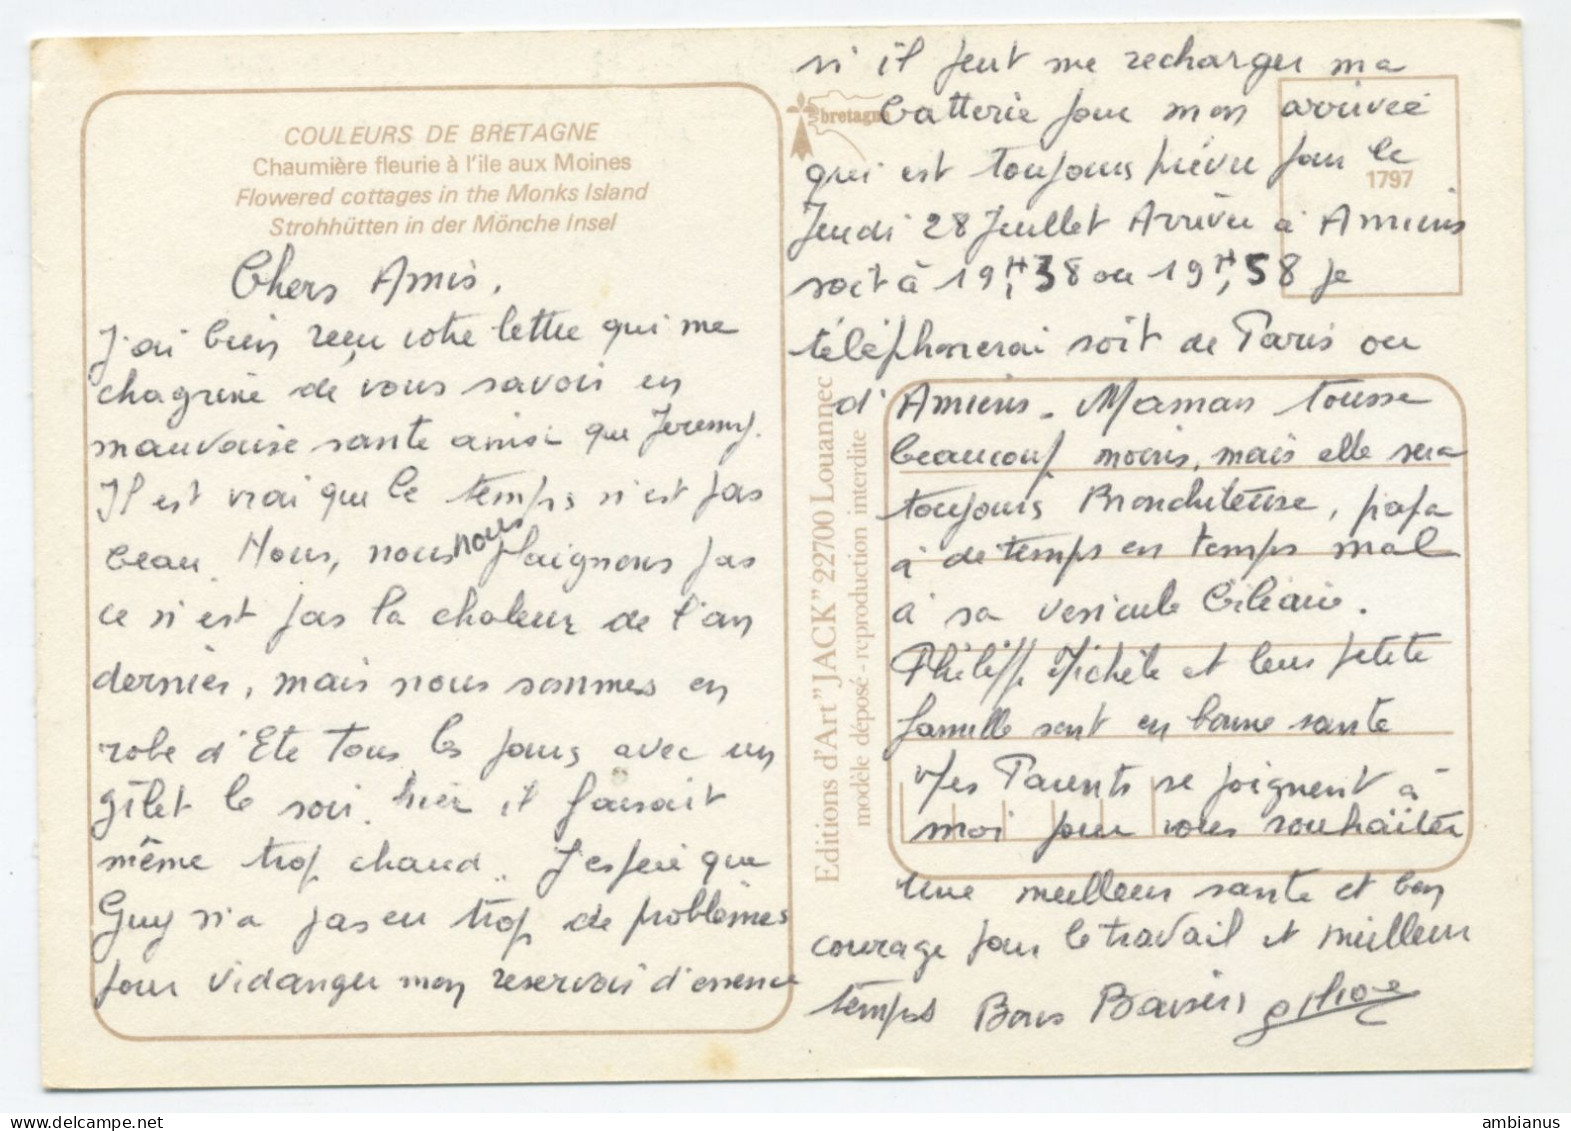 COULEURS DE BRETAGNE
Chaumière fleurie à l'ile aux Moines
Flowered cottages in the Monks Island
Strohhütten in der Mönche Insel
Chers Amis,
J'ai bien reçu votre lettre qui me
chagrine de vous savoir en
mauvaise sante ainsi que Jeremy.
Il est vrai que le temps n'est pas
beau. Nous, nous nous plaignons pas
ce n'est pas la chaleur de l'an
dernier, mais nous sommes en
robe d'Ete tous les jours avec un
gilet le soir. hier il faisait
même trop chaud.. J'espere que
Guy n'a pas eu trop de problèmes
pour vidanger mon reservoir d'essence
si il peut me recharger ma
batterie pour mon arrivée
qui est toujours prévu pour le
Jeudi 28 Juillet Arrivée à Amiens
soit à 19H,38 ou 19H,58 je
téléphonerai soit de Paris ou
d'Amiens. Maman tousse
beaucoup moins, mais elle sera
toujours Bronchiteuse, papa
à de temps en temps mal
à sa vesicule biliaire.
Philippe Michèle et leur petite
famille sont en bonne sante
Mes Parents se joignent à
moi pour vous souhaiter
une meilleur sante et bon
courage pour le travail et meilleur
temps Bons Baisers
bretagne
1797
Editions d'Art "JACK" 22700 Louannec
modèle déposé - reproduction interdite
delcampe.net
ambianus